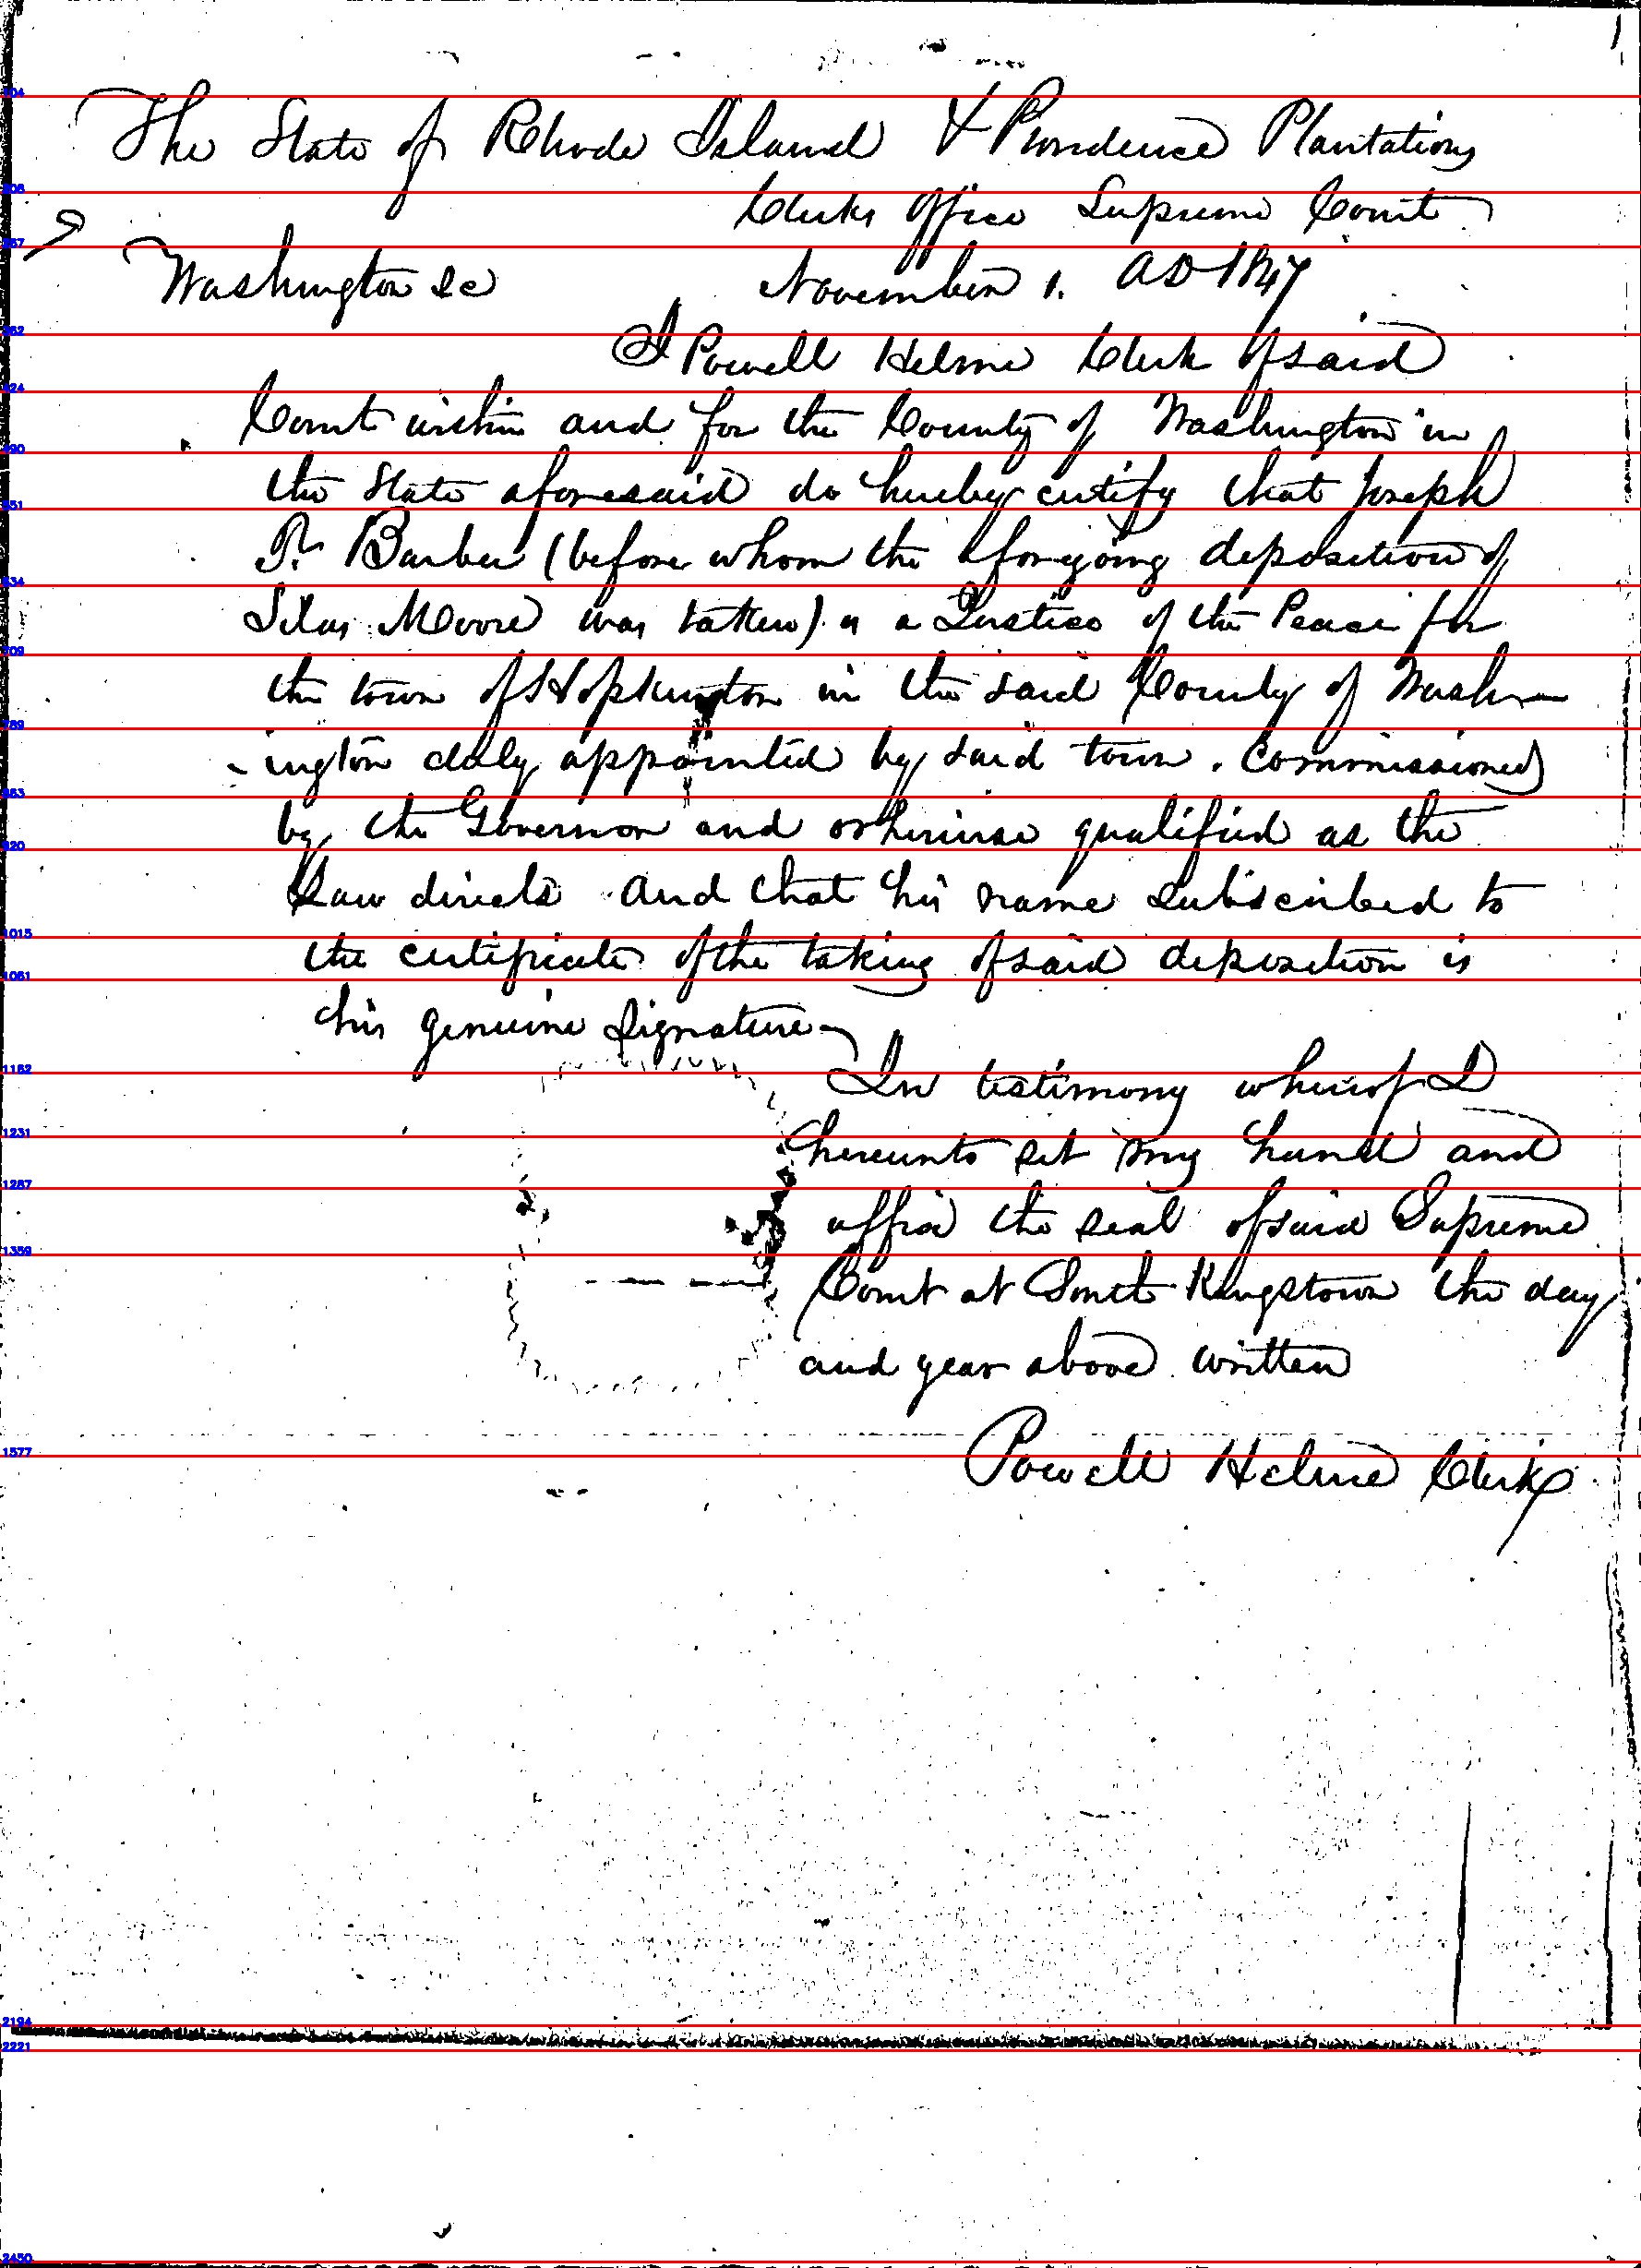 The State of Rhode Island & Providence Plantations
Clerks office Supreme Court
Washington Sc November 1. AD 1847
I Powell Helme Clerk of said
Court within and for the County of Washington in
the State aforesaid do hereby certify that Joseph
T. Barber (before whom the aforegoing deposition of
Silas Moore was taken) is a Justice of the Peace for
the town of Hopkington in the said County of Wash-
-ington duly appointed by said town. Commissioned
by the Governor and otherwise qualified as the
Law directs and that his name subscribed to
the certificate of the taking of said deposition is
his genuine signature
In testimony whereof I
hereunto set my hand and
affix the seal of said Supreme
Court at South Kingstown the day
and year above written
Powell Helme Clerk